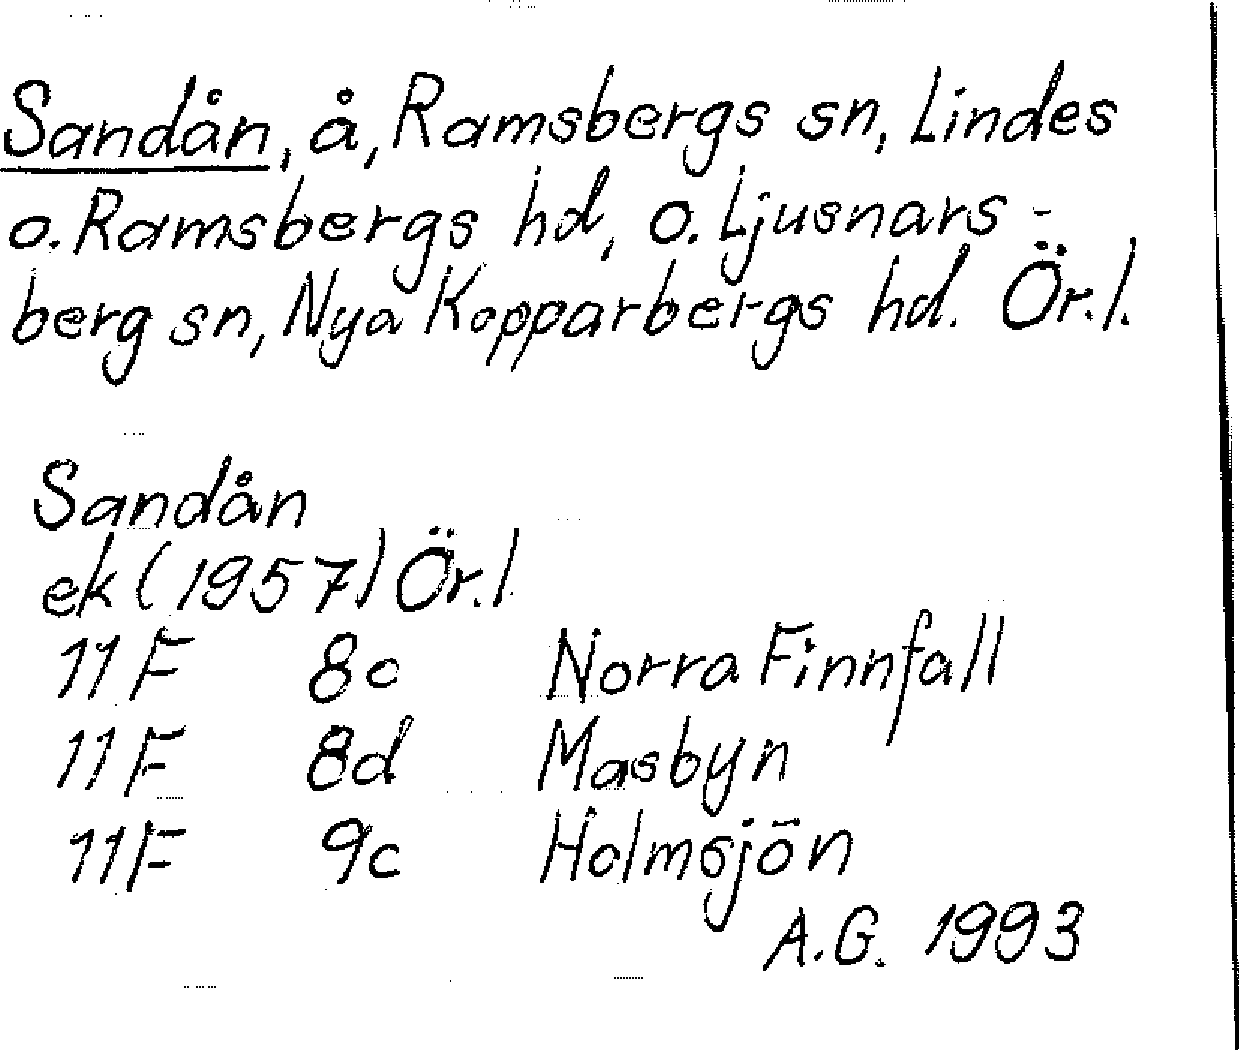 Sandån, å, Ramsbergs sn, Lindes
o. Ramsbergs hd, o. Ljusnars-
berg sn, Nya Kopparbergs hd. Ör.l.
Sandån
ek (1957) Ör.l
11F 8c Norra Finnfall
11F 8d Masbyn
11F 9c Holmsjön
A.G. 1993